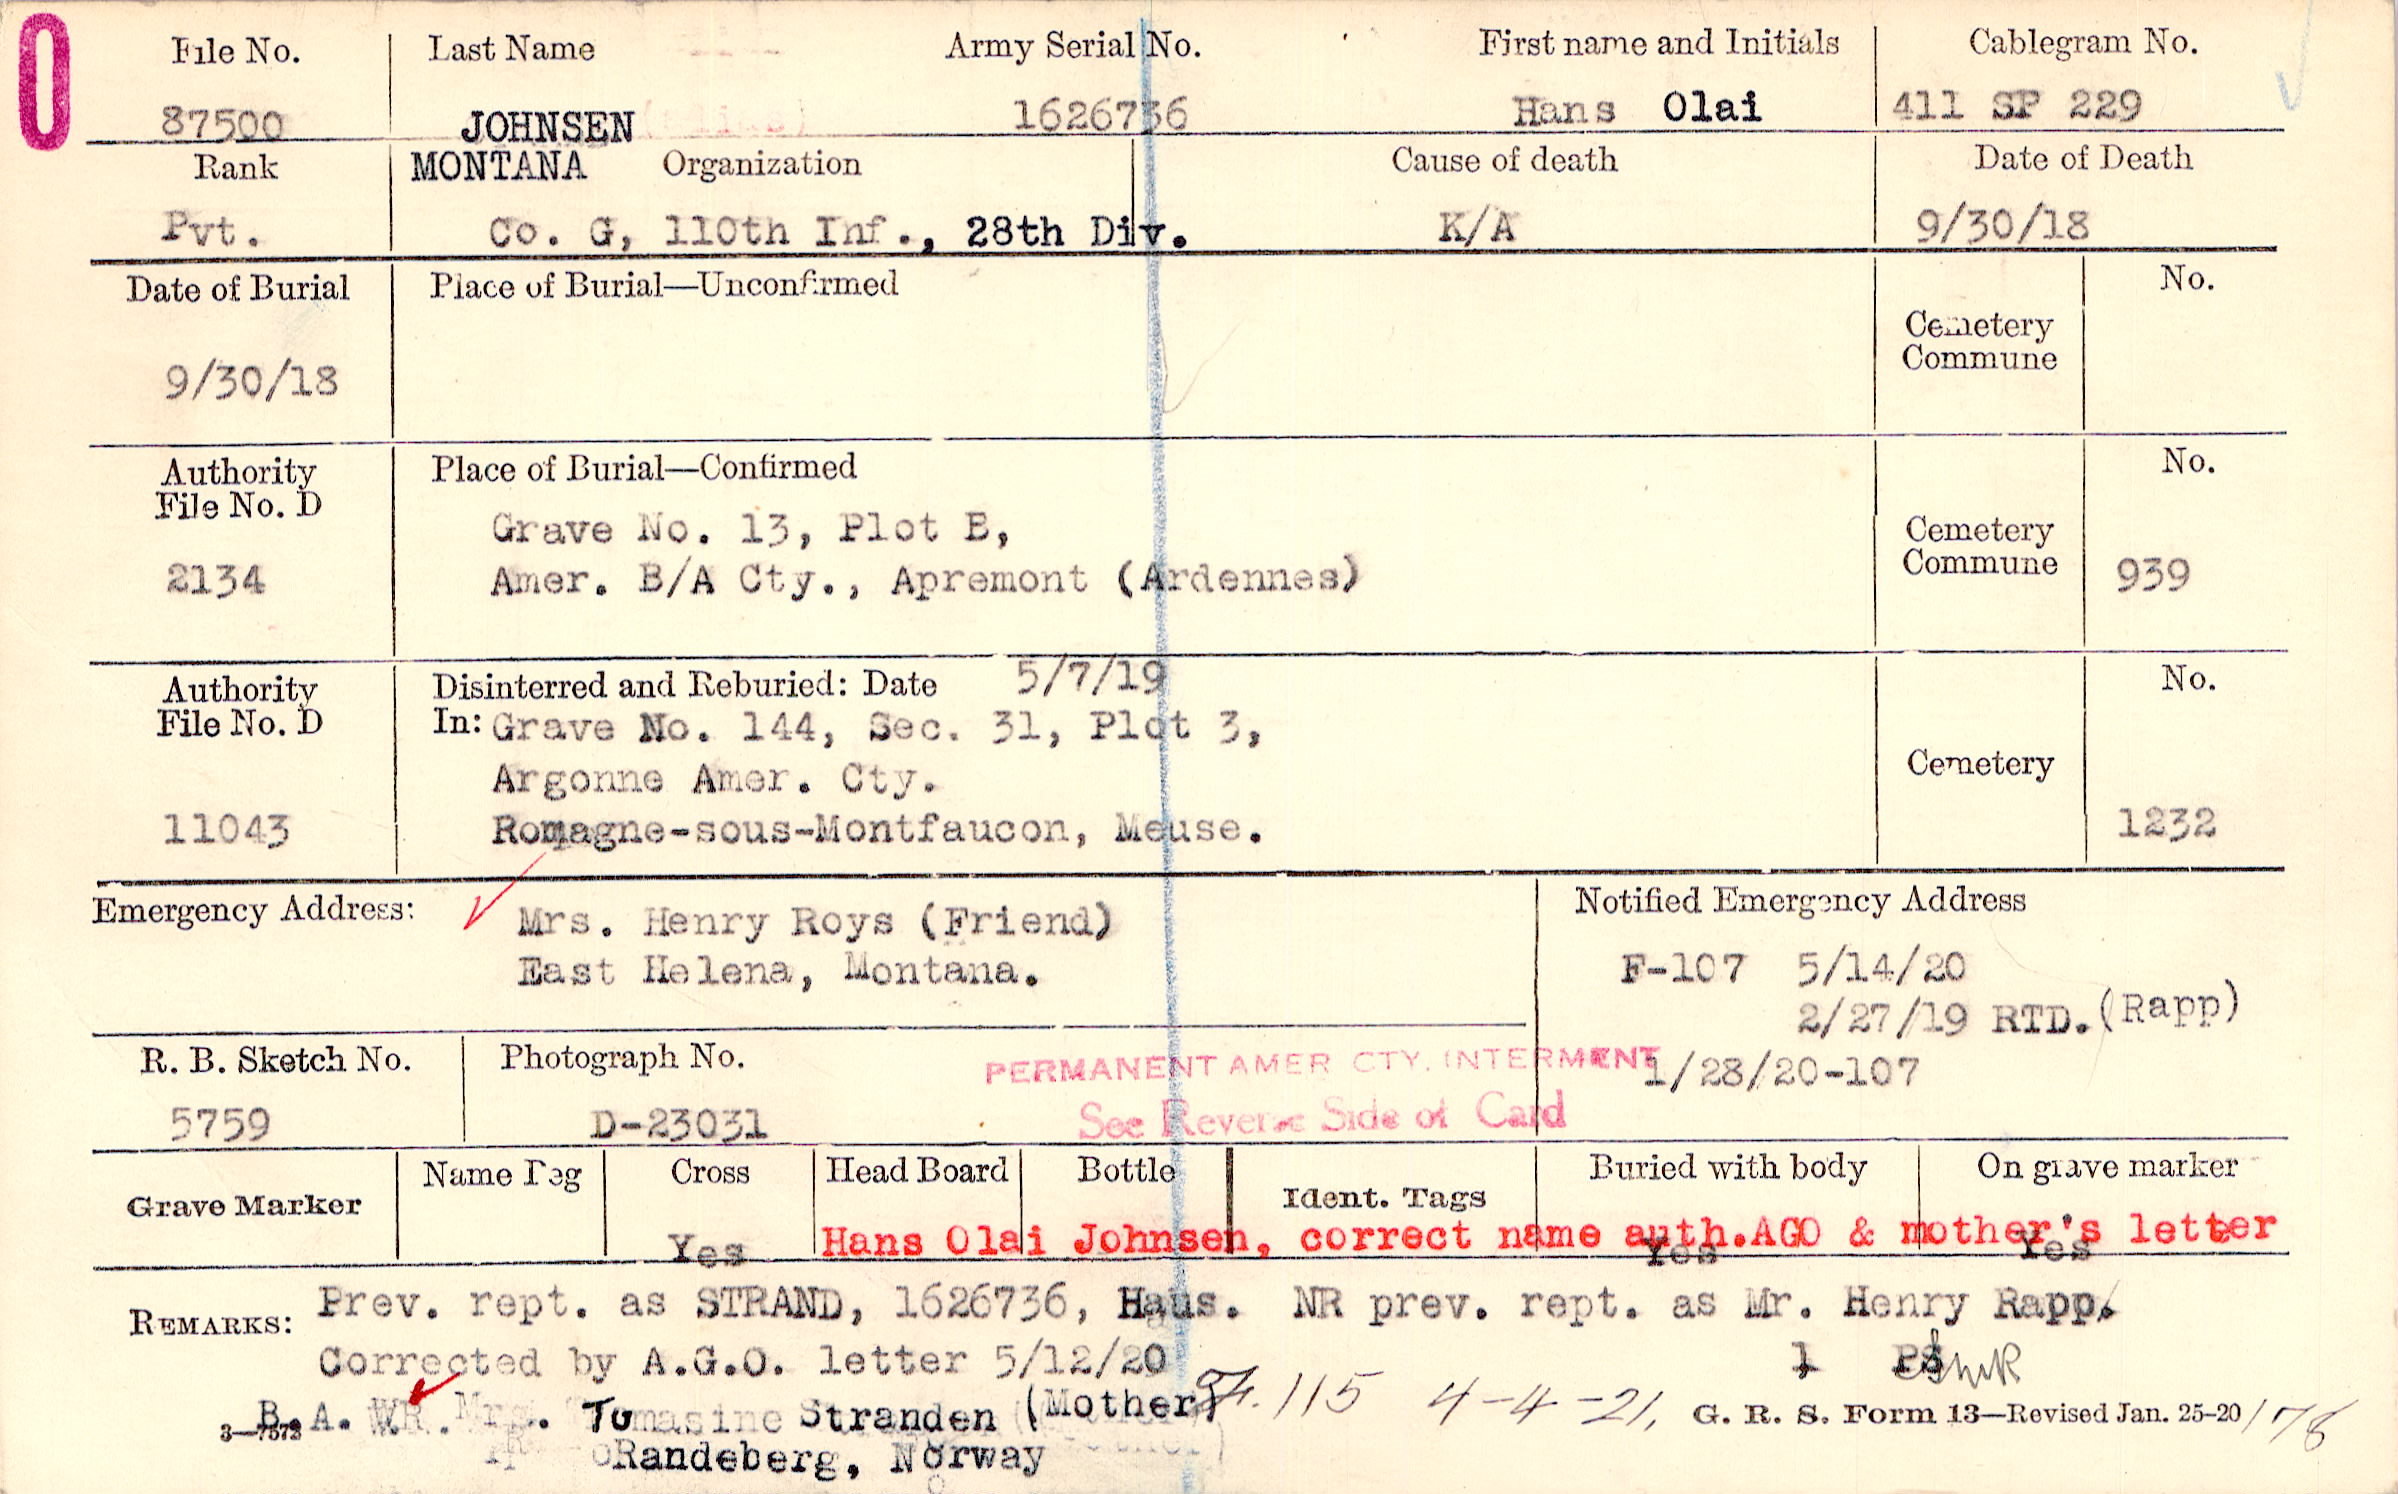 0
File No. Last Name Army Serial No. First name and Initials Cablegram No.
87500 JOHNSEN 1626736 Hans Olai 411 SP 229
Rank MONTANA Organization Cause of death Date of Death
Pvt. Co. G, 110th Inf., 28th Div. K/A 9/30/18
Date of Burial Place of Burial—Unconfirmed No.
Cemetery
Commune
9/30/18
Authority Place of Burial—Confirmed No.
File No. D
Grave No. 13, Plot B, Cemetery
2134 Amer. B/A Cty., Apremont (Ardennes) Commune 939
Authority Disinterred and Reburied: Date 5/7/19 No.
File No. D In: Grave No. 144, Sec. 31, Plot 3,
Argonne Amer. Cty. Cemetery
11043 Romagne-sous-Montfaucon, Meuse. 1232
Emergency Address: Mrs. Henry Roys (Friend) Notified Emergency Address
East Helena, Montana. F-107 5/14/20
2/27/19 RTD. (Rapp)
R. B. Sketch No. Photograph No. PERMANENT AMER CTY. INTERMENT 1/28/20-107
5759 D-23031 See Reverse Side of Card
Grave Marker Name Peg Cross Head Board Bottle Ident. Tags Buried with body On grave marker
Hans Olai Johnsen, correct name auth.AGO & mother's letter
Yes Yes Yes
REMARKS: Prev. rept. as STRAND, 1626736, Hans. NR prev. rept. as Mr. Henry Rapp.
Corrected by A.G.O. letter 5/12/20 1
B.A. W.R. Mrs. Tomasine Stranden (Mother) 115 4-4-21, G. R. S. Form 13—Revised Jan. 25-20 178
3—7573
Randeberg, Norway